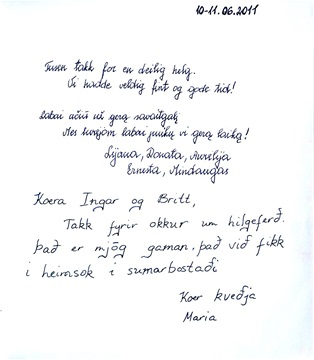 10-11.06.2011
Tusen takk for en deilig helg.
Vi hadde veldig fint og gode tid!
Labai ačiū už gerą savaitgalį
Mes turėjom labai puikų ir gerą laiką!
Lijana, Donata, Aurelija
Ernesta, Mindaugas
Koera Ingar og Britt,
Takk fyrir okkur um hilgeferð.
Það er mjög gaman, það við fikk
i heimsok i sumarbostaði
Koer kveðja
Maria